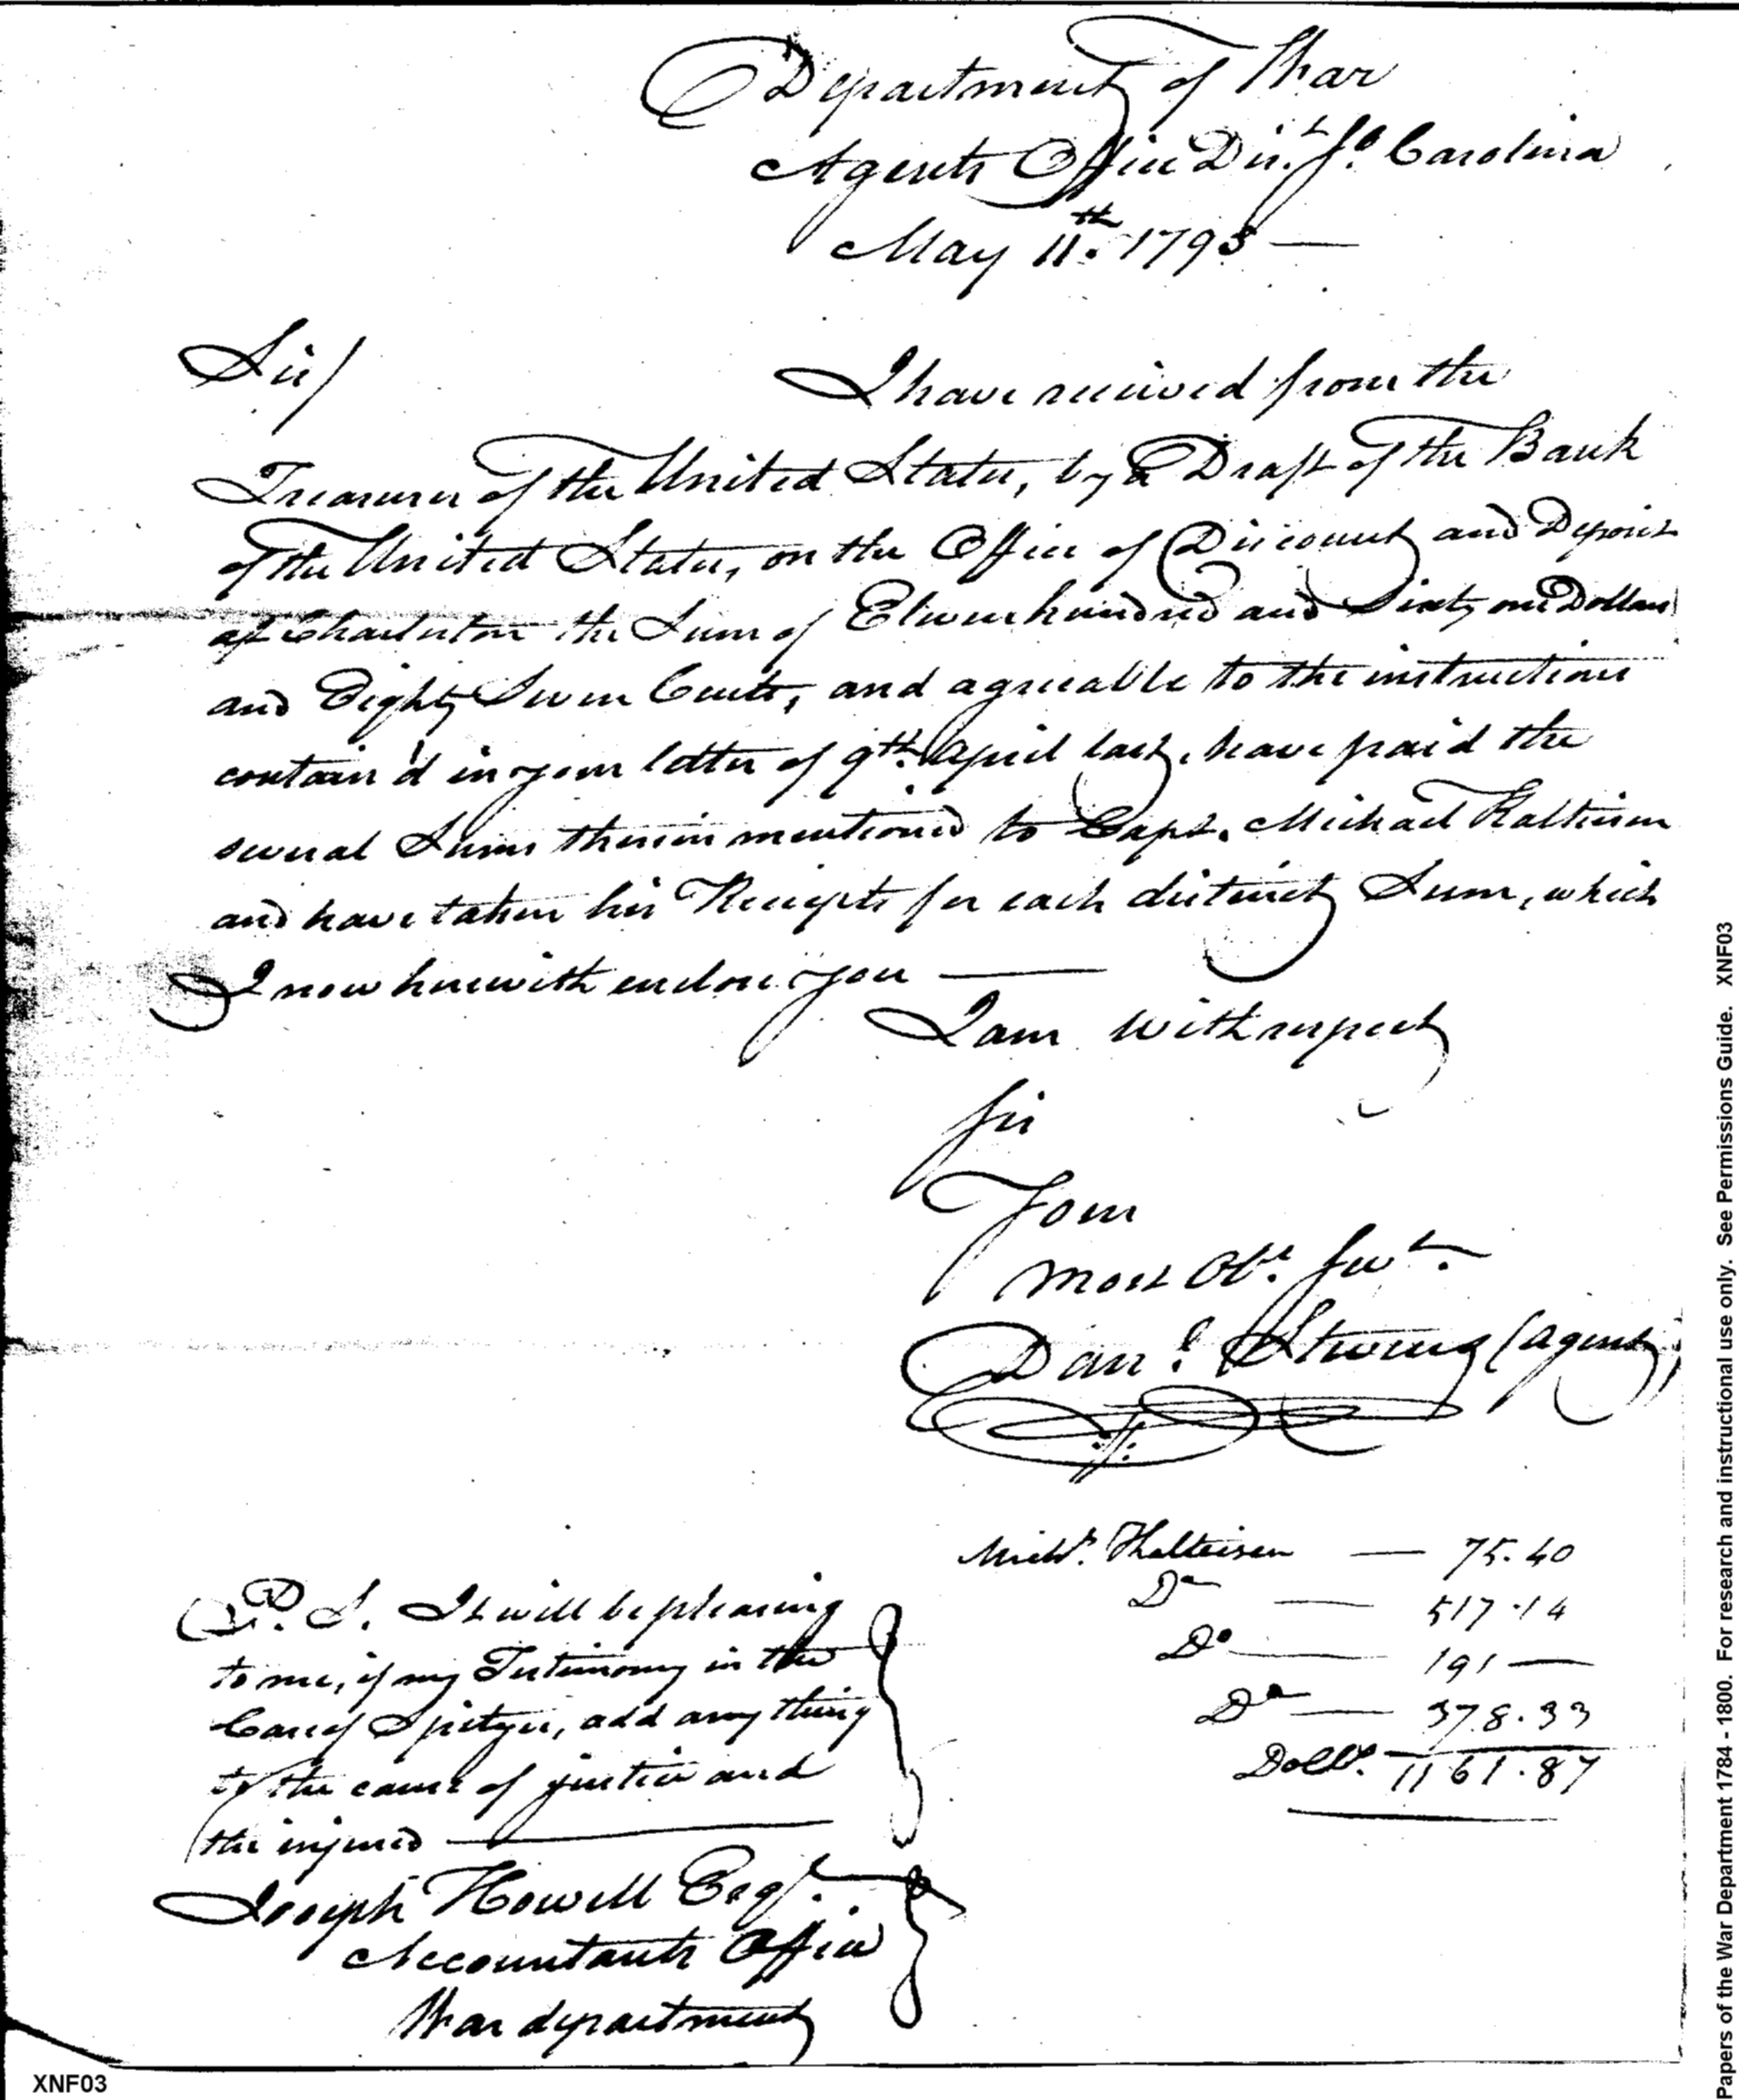 Department of War
Agents Office Dist. So. Carolina
May 11th. 1793 —
Sir/
I have received from the
Treasurer of the United States, by a Draft of the Bank
of the United States, on the Office of Discount and Deposit
at Charleston the Sum of Eleven hundred and Sixty one Dollars
and Eighty Seven Cents, and agreeable to the instructions
contain'd in your letter of 9th. April last, have paid the
several Sums therein mentioned to Capt. Michael Kalteisen
and have taken his Receipts for each distinct Sum, which
I now herewith enclose you —
I am with respect
Sir
Your
most Obt. Servt.
Danl. Stevens (Agent)
Michl. Kalteisen — 75.40
Do — 517.14
Do — 191 —
Do — 378.33
Dolls. 1161.87
P. S. It will be pleasing
to me, if my Testimony in the
Case of Spitzer, add any thing
to the cause of justice and
the injured —
Joseph Howell Esqr.
Accountants Office
War department
XNF03
Papers of the War Department 1784 - 1800. For research and instructional use only. See Permissions Guide. XNF03